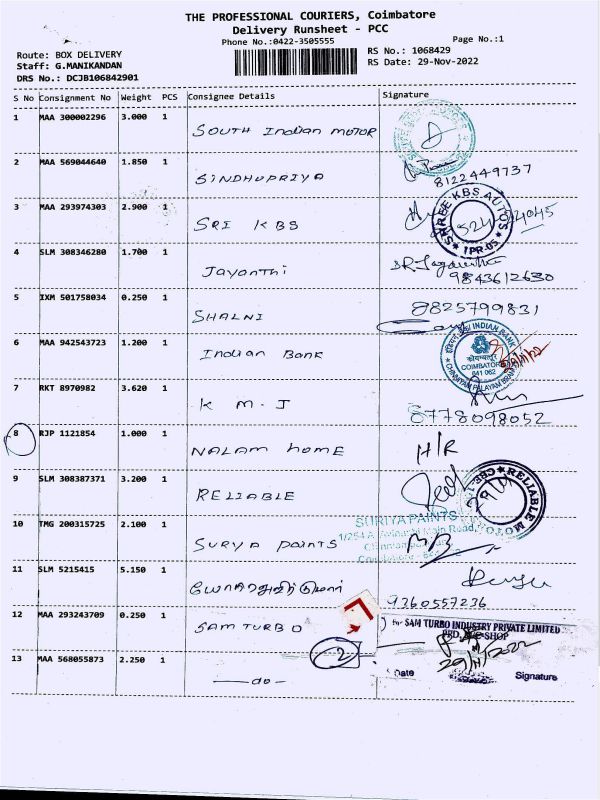 THE PROFESSIONAL COURIERS, Coimbatore
Delivery Runsheet - PCC
Phone No.:0422-3505555
Page No.:1
Route: BOX DELIVERY
RS No.: 1068429
Staff: G.MANIKANDAN
RS Date: 29-Nov-2022
DRS No.: DCJB106842901
S No Consignment No Weight PCS Consignee Details Signature
1 MAA 300002296 3.000 1 SOUTH Indian MOTOR
2 MAA 569044640 1.850 1 SINDHUPRIYA 8122449737
3 MAA 293974303 2.900 1 SRI KBS
SHREE KBS AUTOS
4 SLM 308346280 1.700 1 Jayanthi
9843612630
5 IXM 501758034 0.250 1 SHALNI 8825799831
6 MAA 942543723 1.200 1 Indian Bank
INDIAN BANK
COIMBATORE
641 062
7 RKT 8970982 3.620 1 K M - J
8778098052
8 RJP 1121854 1.000 1 NALAM home H/R
9 SLM 308387371 3.200 1 RELIABLE
RELIABLE
10 TMG 200315725 2.100 1 SURYA PAINTS
SURIYA PAINTS
11 SLM 5215415 5.150 1
9360557236
12 MAA 293243709 0.250 1 SAM TURBO
for SAM TURBO INDUSTRY PRIVATE LIMITED
2
29/11/2022
13 MAA 568055873 2.250 1 —do—
Date Signature